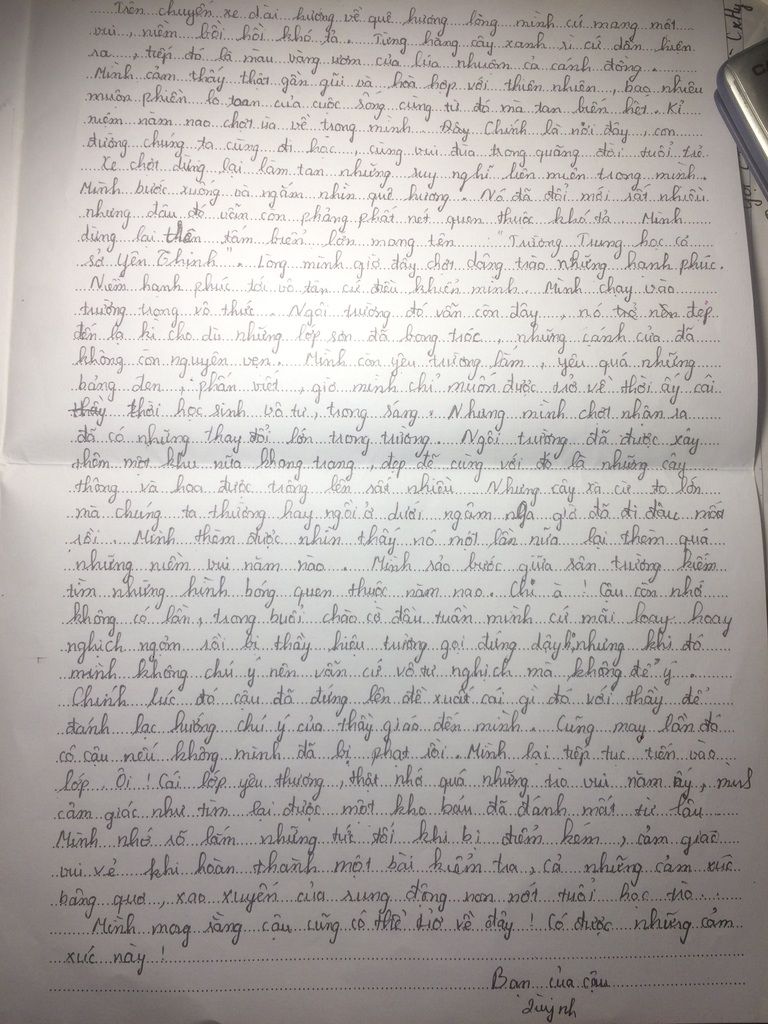 Trên chuyến xe dài hướng về quê hương lòng mình cứ mang một
vui, niềm bồi hồi khó tả. Từng hàng cây xanh rì cứ dần hiện
ra, tiếp đó là màu vàng ươm của lúa nhuốm cả cánh đồng.
Mình cảm thấy thật gần gũi và hoà hợp với thiên nhiên, bao nhiêu
muôn phiền lo toan của cuộc sống cũng từ đó mà tan biến hết. Kỉ
niệm năm nào chợt ùa về trong mình. Đây Chính là nơi đây, con
đường chúng ta cùng đi học, cùng vui đùa trong quãng đời tuổi trẻ.
Xe chợt dừng lại làm tan những suy nghĩ liên miên trong mình.
Mình bước xuống và ngắm nhìn quê hương. Nó đã đổi mới rất nhiều
nhưng đâu đó vẫn còn phảng phất nét quen thuộc khó tả. Mình
dừng lại trên tấm biển lớn mang tên "Trường Trung học cơ
sở Yên Thịnh". Lòng mình giờ đây chợt dâng trào những hạnh phúc.
Niềm hạnh phúc tới vô tận cứ điều khiển mình. Mình chạy vào
trường trong vô thức. Ngôi trường đó vẫn còn đây, nó trở nên đẹp
đến lạ kì cho dù những lớp sơn đã bong tróc, những cánh cửa đã
không còn nguyên vẹn. Mình còn yêu trường lắm, yêu quá những
bảng đen, phấn viết, giờ mình chỉ muốn được trở về thời ấy cái
thời học sinh vô tư, trong sáng. Nhưng mình chợt nhận ra
đã có những thay đổi lớn trong trường. Ngôi trường đã được xây
thêm một khu nữa khang trang, đẹp đẽ cùng với đó là những cây
thông và hoa được trồng lên rất nhiều. Nhưng cây xà cừ to lớn
mà chúng ta thường hay ngồi ở dưới ngâm nga giờ đã đi đâu mất
rồi. Mình thèm được nhìn thấy nó một lần nữa lại thèm quá
những niềm vui năm nào. Mình rảo bước giữa sân trường kiếm
tìm những hình bóng quen thuộc năm nao. Chi à! Cậu còn nhớ
không có lần, trong buổi chào cờ đầu tuần mình cứ mãi loay hoay
nghịch ngợm rồi bị thầy hiệu trưởng gọi đứng dậy, nhưng khi đó
mình không chú ý nên vẫn cứ vô tư nghịch mà không để ý.
Chính lúc đó cậu đã đứng lên đề xuất cái gì đó với thầy để
đánh lạc hướng chú ý của thầy giáo đến mình. Cũng may lần đó
có cậu nếu không mình đã bị phạt rồi. Mình lại tiếp tục tiến vào
lớp. Ôi! Cái lớp yêu thương, thật nhớ quá những trò vui năm ấy,
cảm giác như tìm lại được một kho báu đã đánh mất từ lâu
Mình nhớ rõ lắm những tức tối khi bị điểm kém, cảm giác
vui vẻ khi hoàn thành một bài kiểm tra, cả những cảm xúc
bâng quơ, xao xuyến của rung động non nớt tuổi học trò.
Mình mong rằng cậu cũng có thể trở về đây! Có được những cảm
xúc này!
Bạn của cậu
Quỳnh